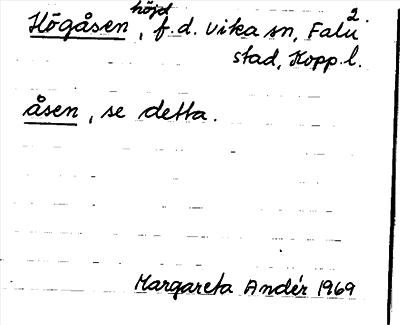 Högåsen höjd, f.d. Vika sn, Falu 2.
stad, Kopp.l.
åsen, se detta.
Margareta Andér 1969